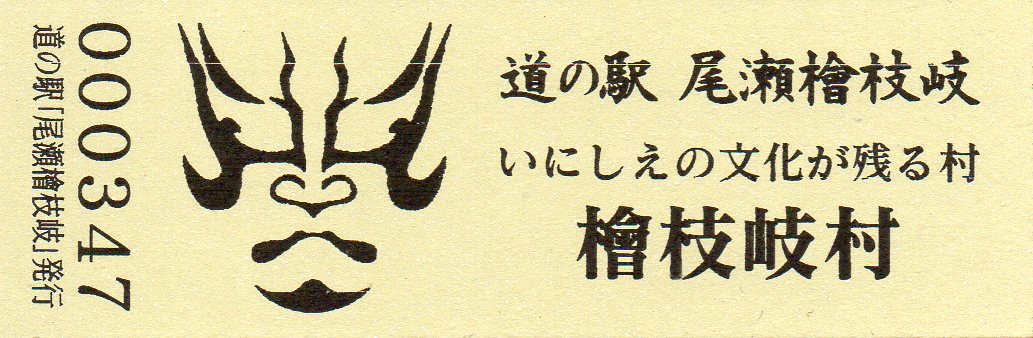 道の駅 尾瀬檜枝岐
いにしえの文化が残る村
檜枝岐村
000347
道の駅「尾瀬檜枝岐」発行